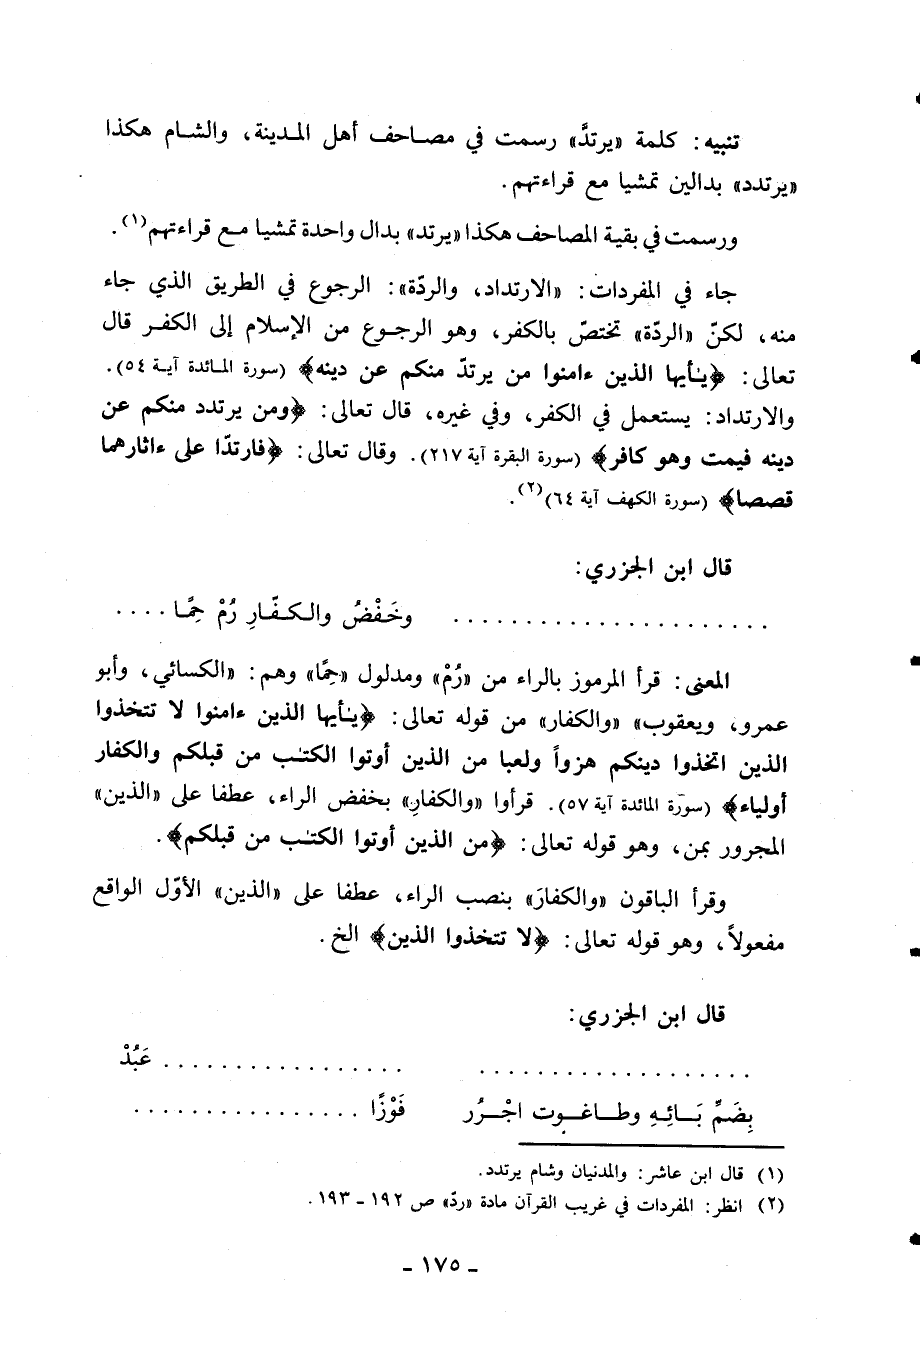 تنبيه: كلمة «يرتدَّ» رسمت في مصاحف أهل المدينة، والشام هكذا
«يرتدد» بدالين تمشيا مع قراءتهم.
ورسمت في بقية المصاحف هكذا «يرتد» بدال واحدة تمشيا مع قراءتهم(١).
جاء في المفردات: «الارتداد، والردّة»: الرجوع في الطريق الذي جاء
منه، لكنّ «الردّة» تختصّ بالكفر، وهو الرجوع من الإسلام إلى الكفر قال
تعالى: ﴿يـٰأيها الذين ءامنوا من يرتدّ منكم عن دينه﴾ (سورة المائدة آية ٥٤).
والارتداد: يستعمل في الكفر، وفي غيره، قال تعالى: ﴿ومن يرتدد منكم عن
دينه فيمت وهو كافر﴾ (سورة البقرة آية ٢١٧). وقال تعالى: ﴿فارتدّا على ءاثارهما
قصصا﴾ (سورة الكهف آية ٦٤)(٢).
قال ابن الجزري:
. . . . . . . . . . . . . . . . . . . . . . وخَفْضُ والكفّارِ رُمْ حِمًّا . . . .
المعنى: قرأ المرموز بالراء من «رُمْ» ومدلول «حِمًّا» وهم: «الكسائي، وأبو
عمرو، ويعقوب» «والكفار» من قوله تعالى: ﴿يـٰأيها الذين ءامنوا لا تتخذوا
الذين اتخذوا دينكم هزواً ولعبا من الذين أوتوا الكتـٰب من قبلكم والكفار
أولياء﴾ (سورة المائدة آية ٥٧). قرأوا «والكفارِ» بخفض الراء، عطفا على «الذين»
المجرور بمن، وهو قوله تعالى: ﴿من الذين أوتوا الكتـٰب من قبلكم﴾.
وقرأ الباقون «والكفارَ» بنصب الراء، عطفا على «الذين» الأوّل الواقع
مفعولاً، وهو قوله تعالى: ﴿لا تتخذوا الذين﴾ الخ.
قال ابن الجزري:
. . . . . . . . . . . . . . . . . . . . . . . . . . . . . . . . . . . . عَبُدْ
بِضَمِّ بَائِهِ وطاغوت اجْرُر فَوْزًا . . . . . . . . . . . . . . . .
(١) قال ابن عاشر: والمدنيان وشام يرتدد.
(٢) انظر: المفردات في غريب القرآن مادة «ردّ» ص ١٩٢ - ١٩٣.
- ١٧٥ -